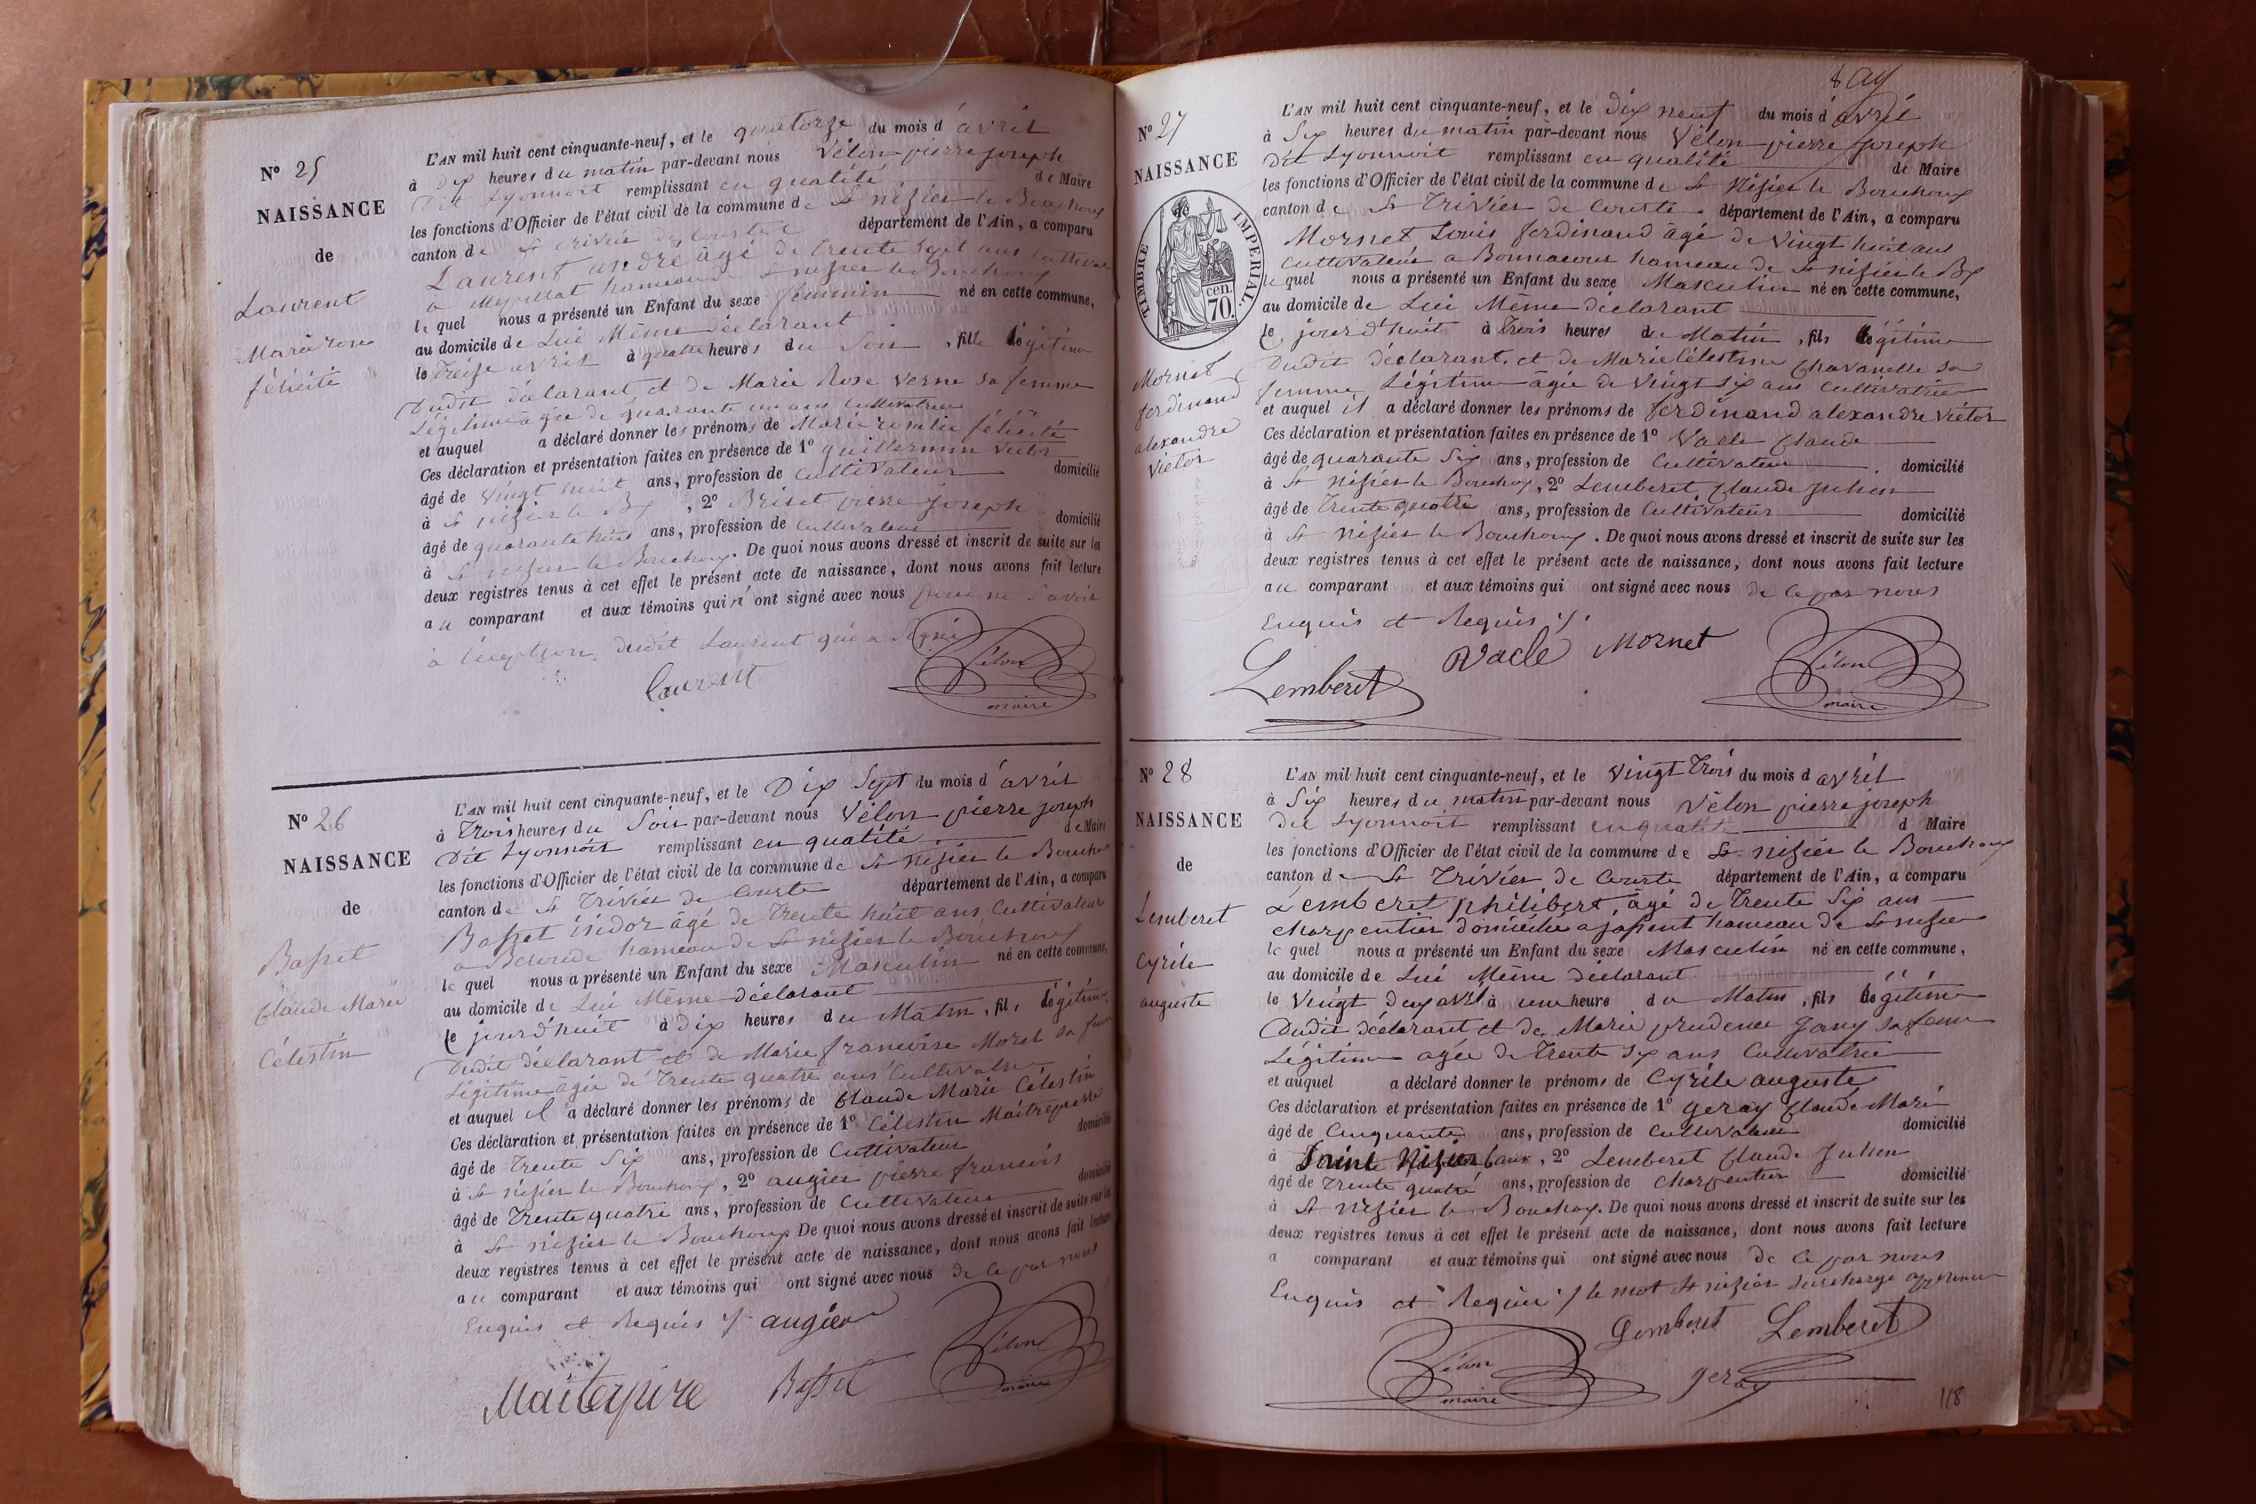 Nº 25
NAISSANCE
de
Laurent
Marie rose
félicité
L'AN mil huit cent cinquante-neuf, et le quatorze du mois d'avril
à Dix heures du matin par-devant nous Vélon pierre joseph
Dit Lyonnois remplissant en qualité de Maire
les fonctions d'Officier de l'état civil de la commune de St nizier le Bouchoux
canton de St trivier de Courtes département de l'Ain, a comparu
Laurent andré âgé de trente sept ans cultivateur
a hameau de St nizier le Bouchoux
le quel nous a présenté un Enfant du sexe féminin né en cette commune,
au domicile de Lui Même déclarant
le treize avril à quatre heures du Soir , fille légitime
Dudit déclarant et de Marie Rose Verne sa femme
Légitime âgée de quarante un ans cultivatrice
et auquel a déclaré donner les prénoms de Marie rosalie félicité
Ces déclaration et présentation faites en présence de 1º guillermin victor
âgé de vingt huit ans, profession de cultivateur domicilié
à St nizier le Bx , 2º Briset pierre Joseph
âgé de quarante huit ans, profession de cultivateur domicilié
à St nizier le Bouchoux. De quoi nous avons dressé et inscrit de suite sur les
deux registres tenus à cet effet le présent acte de naissance, dont nous avons fait lecture
au comparant et aux témoins qui n' ont signé avec nous pour ne savoir
à l'exception dudit Laurent qui a signé
Laurent
Vélon
maire
Nº 26
NAISSANCE
de
Basset
Claude Marie
Célestin
L'AN mil huit cent cinquante-neuf, et le Dix Sept du mois d'avril
à Trois heures du Soir par-devant nous Vélon pierre joseph
Dit Lyonnois remplissant en qualité de Maire
les fonctions d'Officier de l'état civil de la commune de St nizier le Bouchoux
canton de St Trivier de Courte département de l'Ain, a comparu
Basset isidor âgé de Trente huit ans, Cultivateur
a hameau de St nizier le Bouchoux
le quel nous a présenté un Enfant du sexe Masculin né en cette commune,
au domicile de Lui Même déclarant
le jourd'huit à dix heures du Matin , fils légitime
Dudit déclarant et de Marie francoise Morel sa femme
Légitime âgée de Trente quatre ans Cultivatrice
et auquel il a déclaré donner les prénoms de Claude Marie Célestin
Ces déclaration et présentation faites en présence de 1º Célestin Maitrepierre
âgé de Trente Six ans, profession de Cultivateur domicilié
à St nizier le Bouchoux, 2º augier pierre francois
âgé de Trente quatre ans, profession de Cultivateur domicilié
à St nizier le Bouchoux De quoi nous avons dressé et inscrit de suite sur les
deux registres tenus à cet effet le présent acte de naissance, dont nous avons fait lecture
au comparant et aux témoins qui ont signé avec nous de ce par nous
Enquis et Requis ./. augier
Maiterpire Basset
Vélon
maire
Nº 27
NAISSANCE
TIMBRE IMPERIAL.
70. cen.
Mornet
ferdinand
alexandre
victor
L'AN mil huit cent cinquante-neuf, et le dix neuf du mois d'avril
à Six heures du matin par-devant nous Vélon pierre Joseph
Dit Lyonnoit remplissant en qualité de Maire
les fonctions d'Officier de l'état civil de la commune de St Nizier le Bouchoux
canton de St Trivier de Courte département de l'Ain, a comparu
Mornet Louis ferdinand âgé de Vingt huit ans
Cultivateur a Bonnacour hameau de St nizier le Bx
le quel nous a présenté un Enfant du sexe Masculin né en cette commune,
au domicile de Lui Même déclarant
le jourd'huit à Trois heures du Matin , fils légitime
Dudit déclarant et de Marie Célestine Chavanelle sa
femme Légitime âgée de Vingt six ans cultivatrice
et auquel il a déclaré donner les prénoms de ferdinand alexandre victor
Ces déclaration et présentation faites en présence de 1º Vacle Claude
âgé de quarante Six ans, profession de Cultivateur domicilié
à St nizier le Bouchoux, 2º Lemberet Claude Julien
âgé de Trente quatre ans, profession de Cultivateur domicilié
à St nizier le Bouchoux. De quoi nous avons dressé et inscrit de suite sur les
deux registres tenus à cet effet le présent acte de naissance, dont nous avons fait lecture
au comparant et aux témoins qui ont signé avec nous de ce par nous
Enquis et Requis ./.
Lemberet Vacle Mornet
Vélon
maire
Nº 28
NAISSANCE
de
Lemberet
Cyrile
auguste
L'AN mil huit cent cinquante-neuf, et le Vingt Trois du mois d avril
à Six heures du matin par-devant nous Vélon pierre joseph
Dit Lyonnoit remplissant en qualité d Maire
les fonctions d'Officier de l'état civil de la commune de St nizier le Bouchoux
canton de St Trivier de Courte département de l'Ain, a comparu
Lemberet philibert, âgé de Trente Six ans
charpentier domicilie a jassent hameau de St nizier
le quel nous a présenté un Enfant du sexe Masculin né en cette commune,
au domicile de Lui Même déclarant
le Vingt deux avril à une heure du Matin , fils légitime
Dudit déclarant et de Marie prudence Gany sa femme
Légitime agée de Trente six ans Cultivatrice
et auquel a déclaré donner le prénoms de Cyrile auguste
Ces déclaration et présentation faites en présence de 1º geray Claude Marie
âgé de Cinquante ans, profession de cultivateur domicilié
à Saint Nizier , 2º Lemberet Claude Julien
âgé de Trente quatre ans, profession de charpentier domicilié
à St nizier le Bouchoux. De quoi nous avons dressé et inscrit de suite sur les
deux registres tenus à cet effet le présent acte de naissance, dont nous avons fait lecture
a comparant et aux témoins qui ont signé avec nous de ce par nous
Enquis et Requis ./ le mot St nizier surchargé approuvé
Lemberet Lemberet
Vélon
maire
geray
118